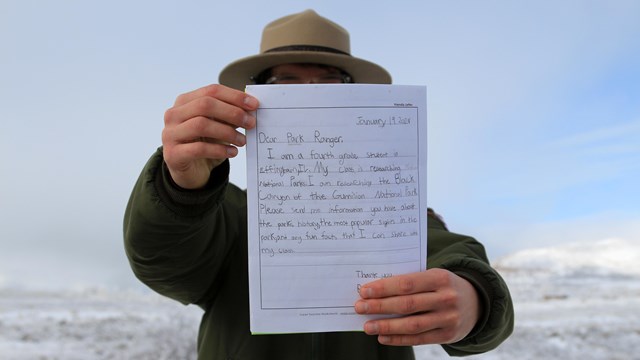 January 19, 2018
Dear Park Ranger,
I am a fourth grade student in
effingham, IL. My class is researching
National Parks. I am researching the Black
Canyon of the Gunnison National Park
Please send me information you have about
the park, history, the most popular sights in the
park, and any fun facts that I can share with
my
Thank you